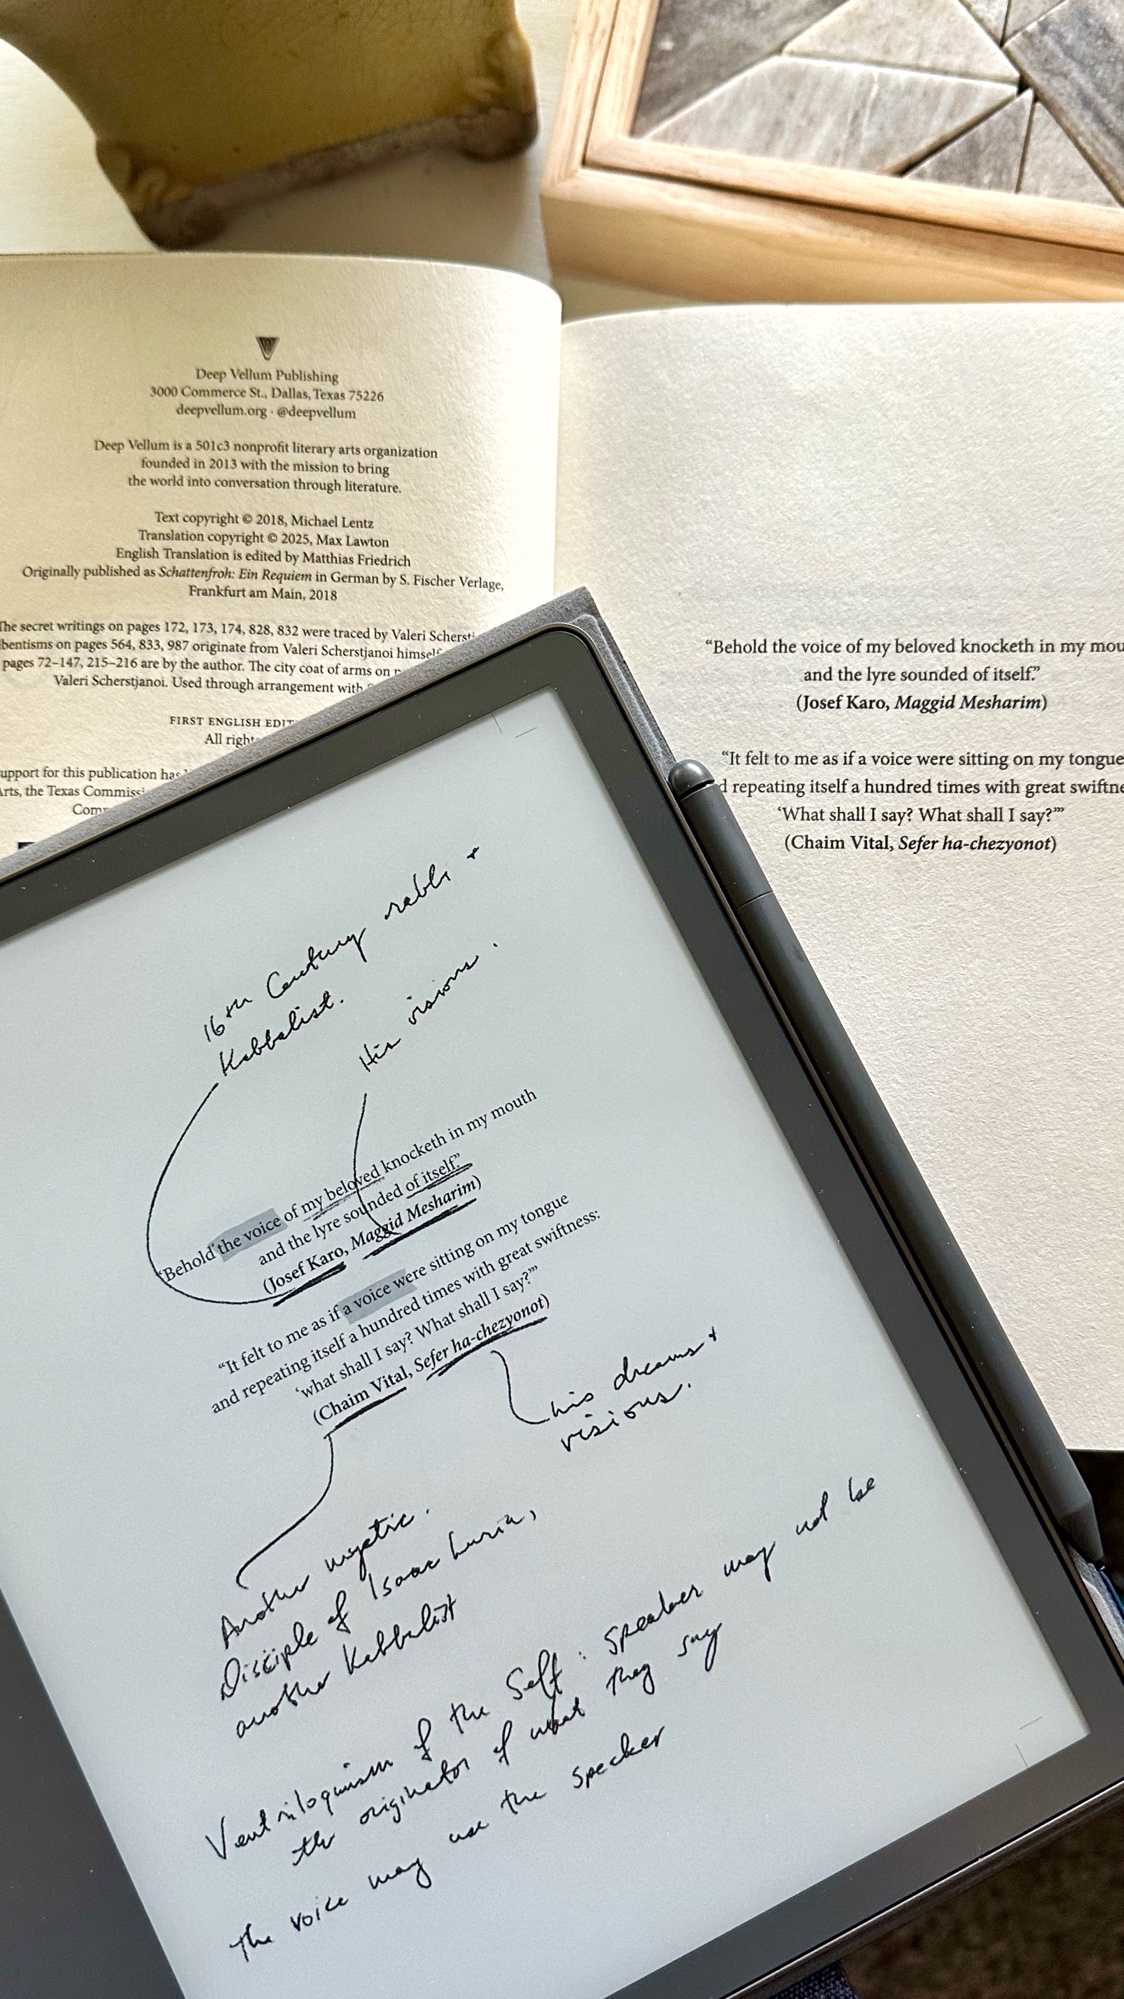 Deep Vellum Publishing
3000 Commerce St., Dallas, Texas 75226
deepvellum.org · @deepvellum
Deep Vellum is a 501c3 nonprofit literary arts organization
founded in 2013 with the mission to bring
the world into conversation through literature.
Text copyright © 2018, Michael Lentz
Translation copyright © 2025, Max Lawton
English Translation is edited by Matthias Friedrich
Originally published as Schattenfroh: Ein Requiem in German by S. Fischer Verlage,
Frankfurt am Main, 2018
The secret writings on pages 172, 173, 174, 828, 832 were traced by Valeri
on pages 564, 833, 987 originate from Valeri Scherstjanoi
pages 72–147, 215–216 are by the author. The city coat of arms on
Valeri Scherstjanoi. Used through arrangement with
FIRST ENGLISH
All
for this publication
the Texas
“Behold the voice of my beloved knocketh in my
and the lyre sounded of itself.”
(Josef Karo, Maggid Mesharim)
“It felt to me as if a voice were sitting on my tongue
repeating itself a hundred times with great
‘What shall I say? What shall I say?’”
(Chaim Vital, Sefer ha-chezyonot)
16th Century rabbi +
Kabbalist.
His visions.
“Behold the voice of my beloved knocketh in my mouth
and the lyre sounded of itself.”
(Josef Karo, Maggid Mesharim)
“It felt to me as if a voice were sitting on my tongue
and repeating itself a hundred times with great swiftness:
‘what shall I say? What shall I say?’”
(Chaim Vital, Sefer ha-chezyonot)
his dreams +
visions.
Another mystic.
Disciple of Isaac Luria,
another Kabbalist
Ventriloquism of the Self: speaker may not be
the originator of what they say
the voice may use the speaker